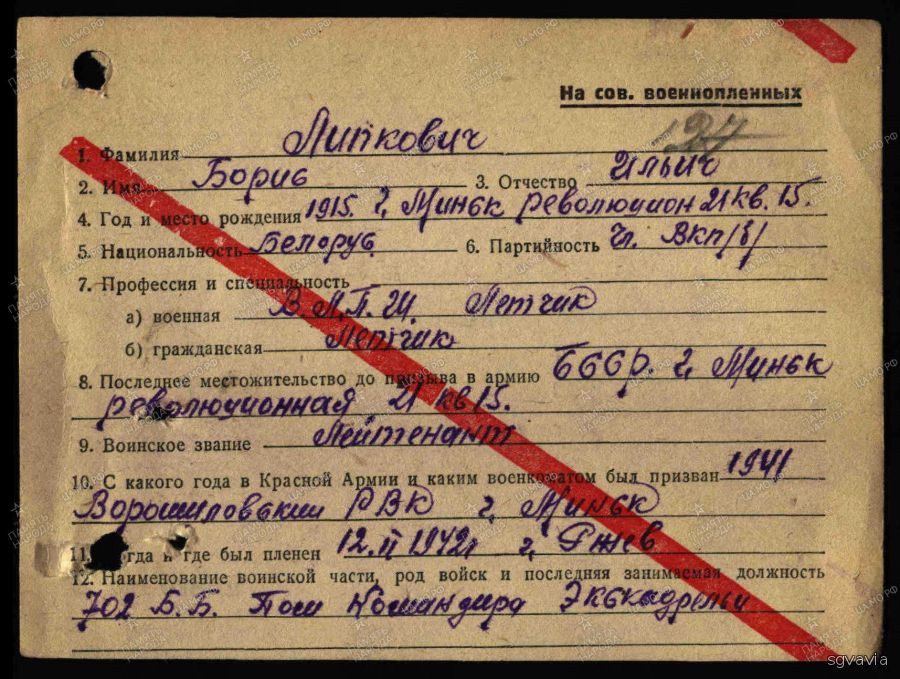 На сов. военнопленных
127
1. Фамилия Липкович
2. Имя Борис 3. Отчество Ильич
4. Год и место рождения 1915. г, Минск революцион 21 кв. 15.
5. Национальность Белорус 6. Партийность Чл. ВКП/б/
7. Профессия и специальность
а) военная В.Л.П. 24. Летчик
б) гражданская Летчик
8. Последнее местожительство до призыва в армию БССР. г, Минск
революционная 21 кв 15.
9. Воинское звание Лейтенант
10. С какого года в Красной Армии и каким военкоматом был призван 1941
Ворошиловский РВК г, Минск
11. Когда и где был пленен 12.II 1942г г, Ржев
12. Наименование воинской части, род войск и последняя занимаемая должность
702 Б.Б. Пом Командира Экскадрельи
sgvavia